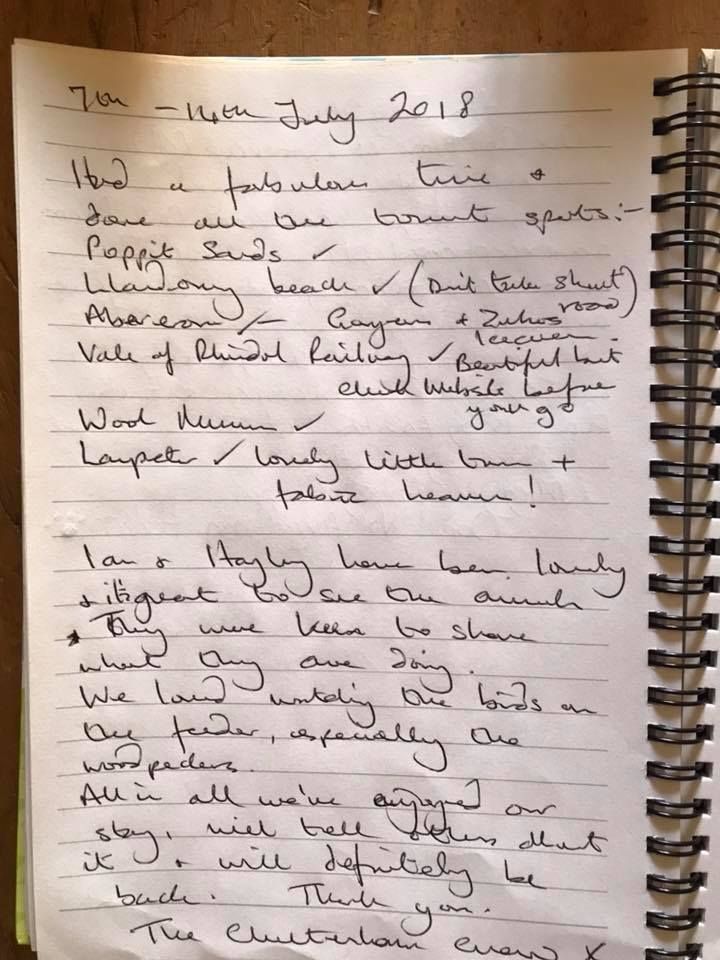 7th - 14th July 2018
Had a fabulous time +
done all the tourist spots:-
Poppit Sands ✓
beach ✓ (Don't take short road)
Aberaeron ✓ - +
Vale of Rheidol Railway ✓ Beautiful but
check website before
you go
Wool Museum ✓
Lampeter ✓ lovely little town +
fabric heaven!
Ian & Hayley have been lovely
+ it's great to see the animals
They were keen to share
what they are doing.
We loved watching the birds on
the feeder, especially the
woodpeckers.
All in all we've enjoyed our
stay, will tell others about
it + will definitely be
back. Thank you.
The X